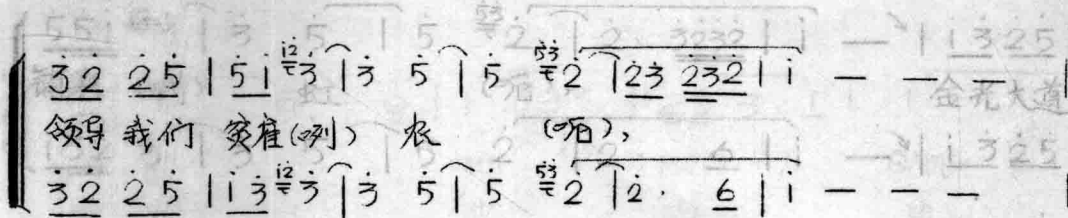 3̇2̇ 2̇5̇ | 5̇i̇ 3̇ | 3̇ 5̇ | 5̇ 2̇ | 2̇3̇ 2̇3̇2̇ | i̇ — — — |
领导 我们 贫雇(咧) 农 (呃),
3̇2̇ 2̇5̇ | i̇3̇ 3̇ | 3̇ 5̇ | 5̇ 2̇ | 2̇· 6 | i̇ — — — |